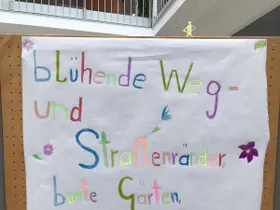 blühende Weg-
und
Straßenränder,
bunte Gärten,